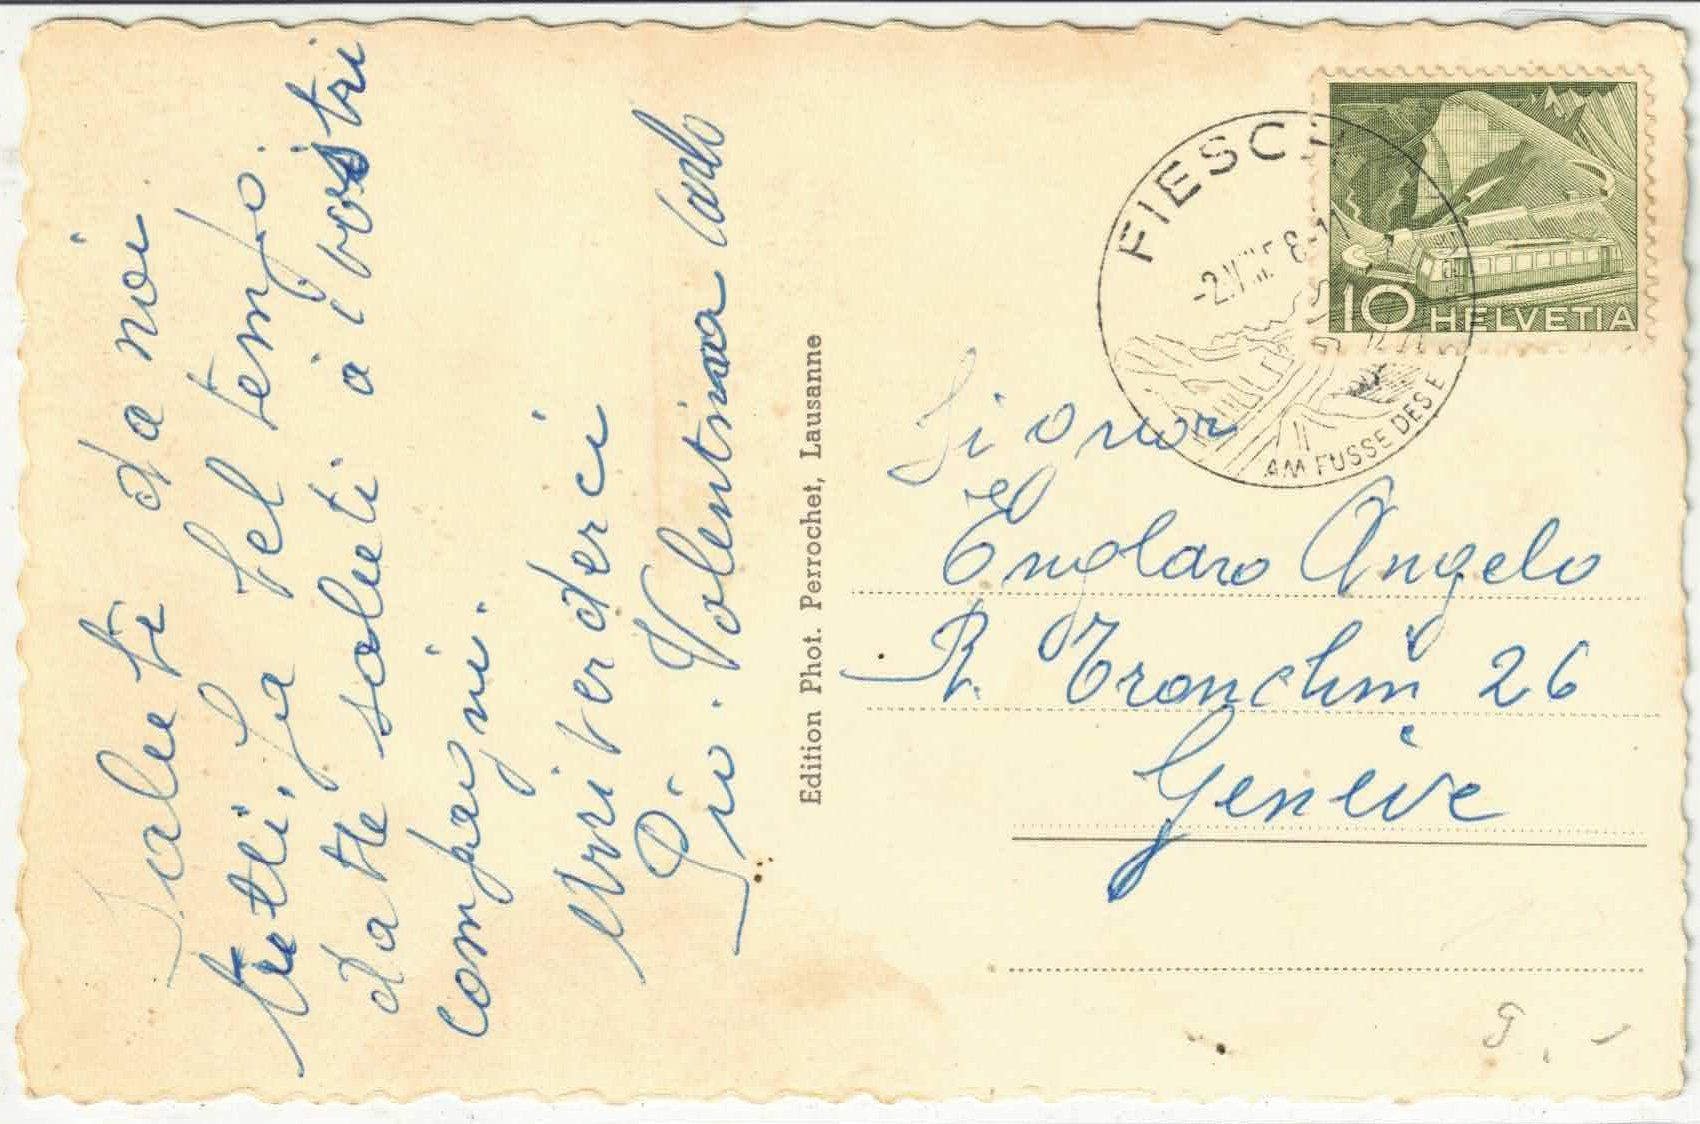 Saluti da noi
tutti, fa bel tempo.
datte saluti à i vostri
compagni.
Arriverderci
Pio. Valentina Carlo
Edition Phot. Perrochet, Lausanne
FIESCH
-2.VIII.5 8-1
AM FUSSE DES E
10 HELVETIA
Signor
Englaro Angelo
R. Tronchin 26
Genève